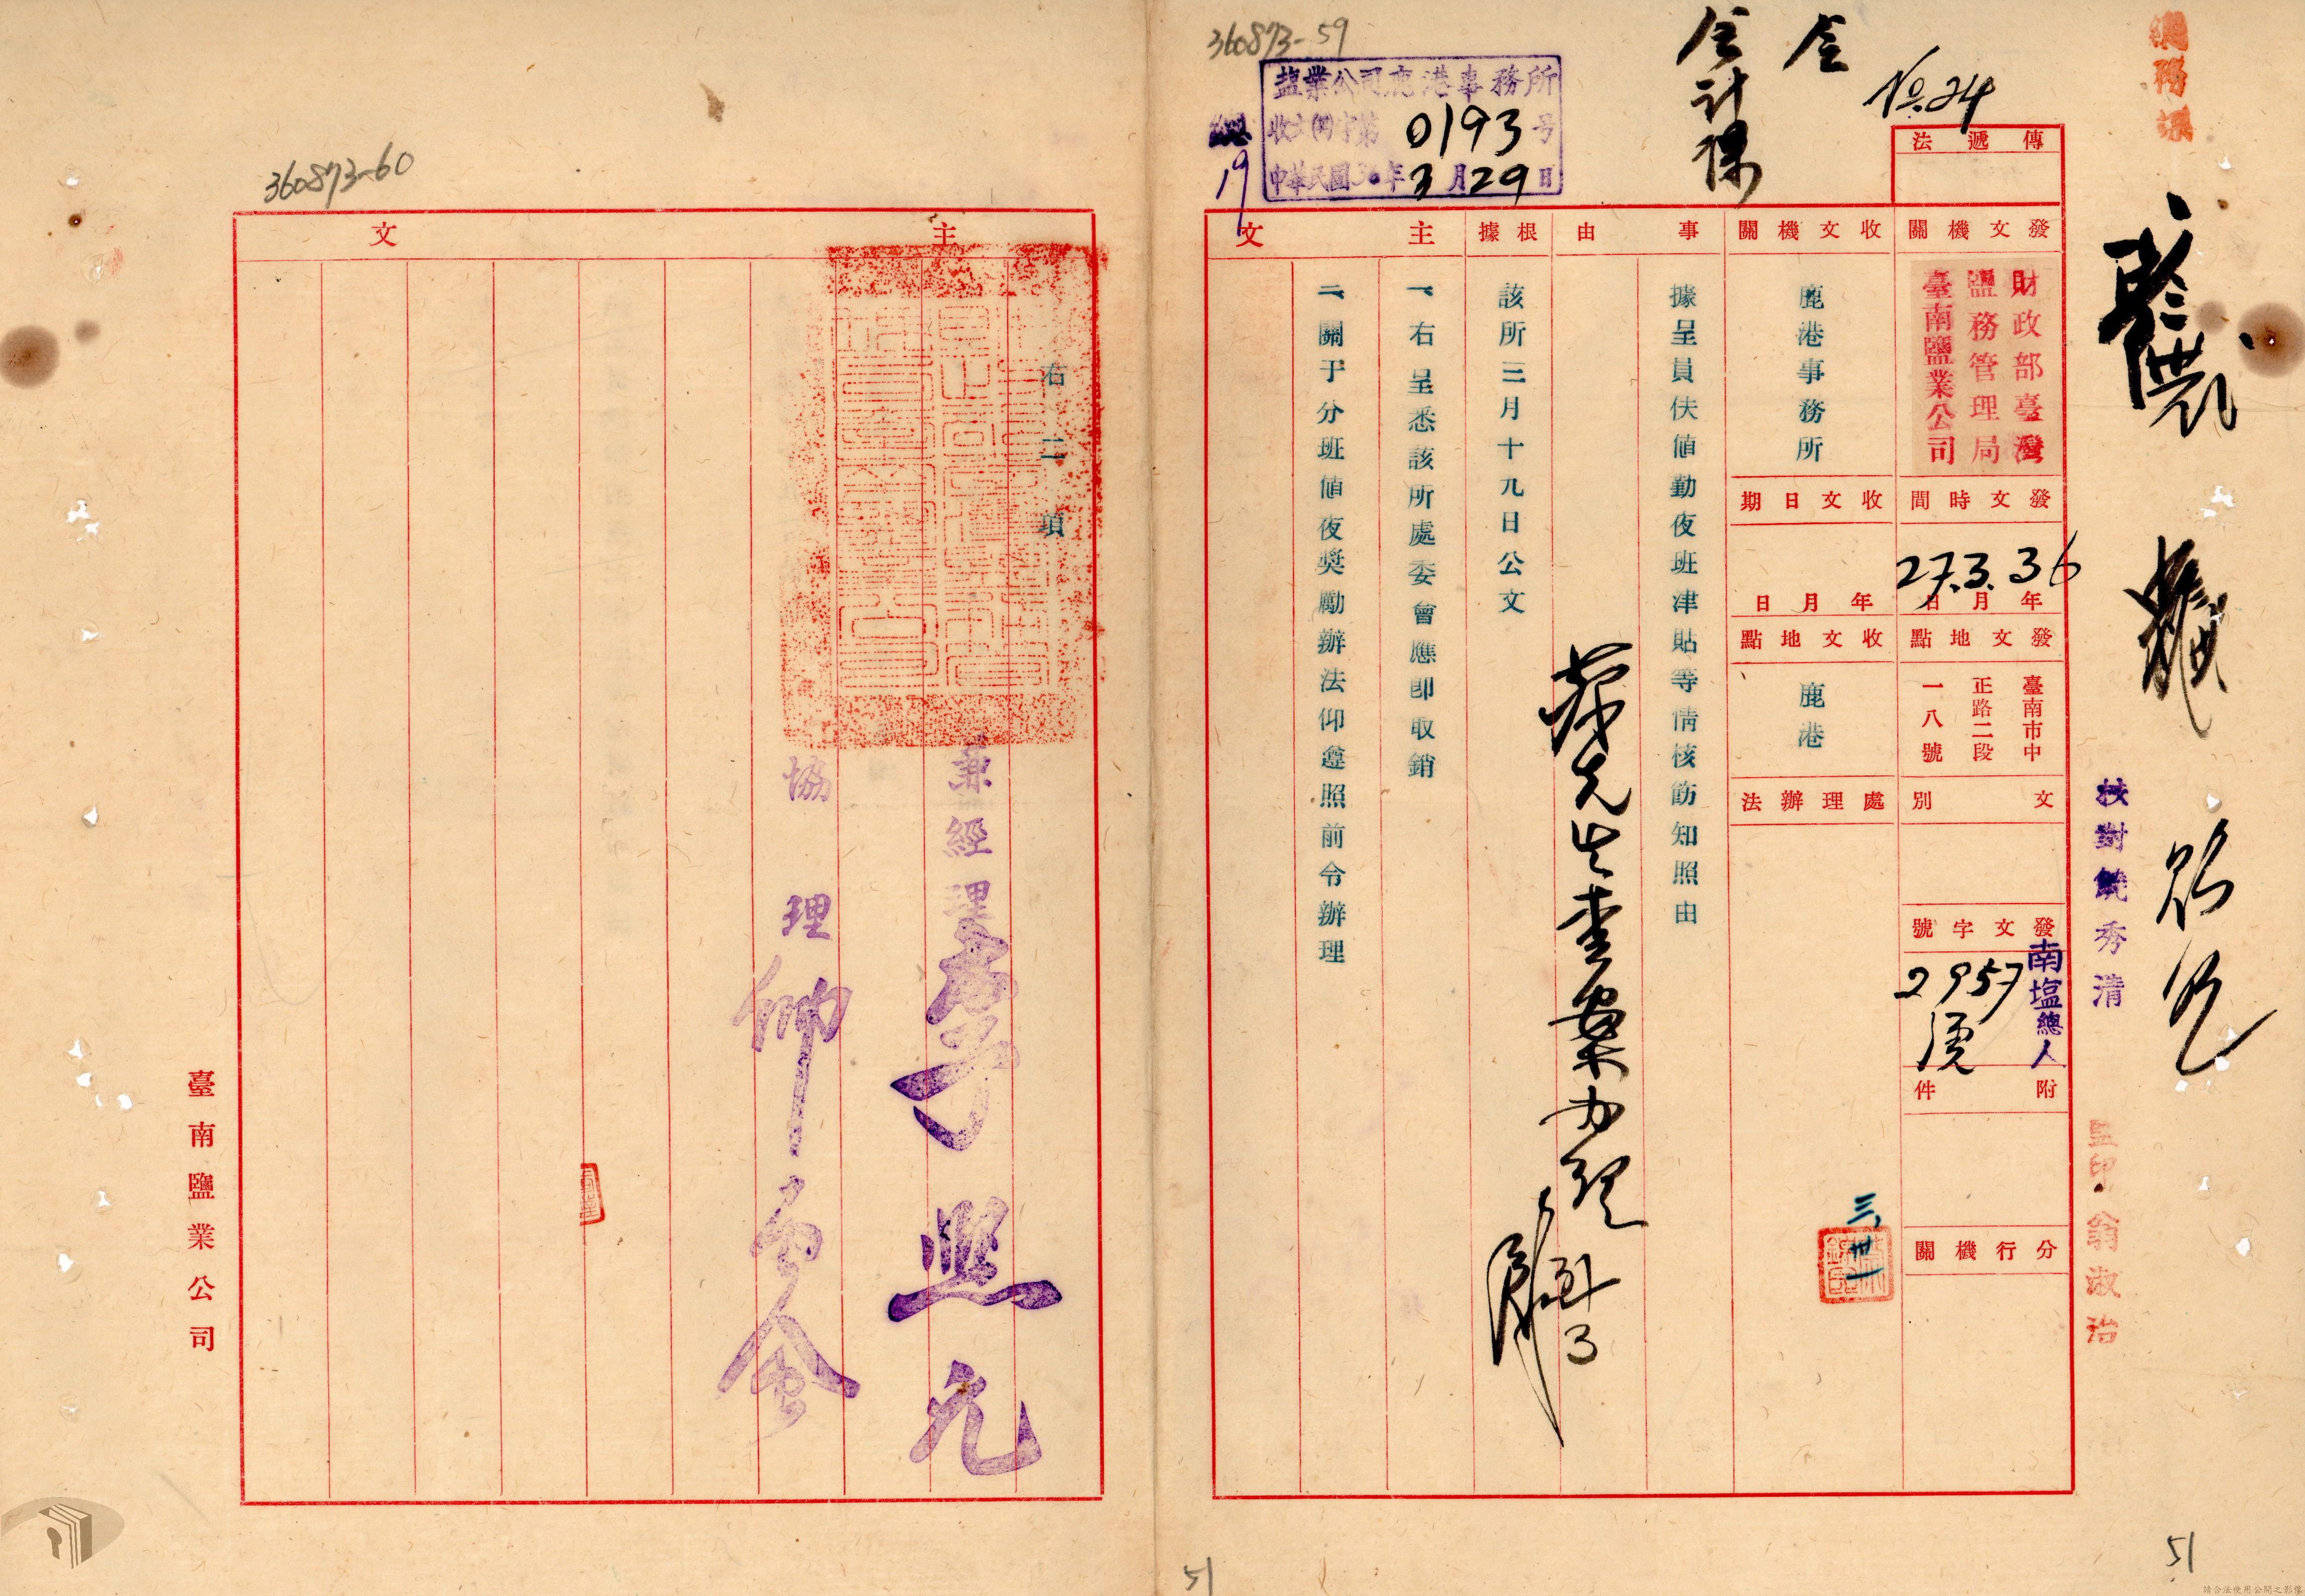 360873-59
塩業公司鹿港事務所
收文(36)字第0193号
中華民國36年3月29日
總
19
會計課
No.24
總務課
傳遞法
發文機關
財政部臺灣
鹽務管理局
臺南鹽業公司
發文時間
36年3月27日
發文地點
臺南市中
正路二段
一八號
文別
發文字號
南塩總人
2957
號
附件
分行機關
收文機關
鹿港事務所
收文日期
年月日
收文地點
鹿港
處理辦法
三、卅一
事由
據呈員伕値勤夜班津貼等情核飭知照由
根據
該所三月十九日公文
主文
一、右呈悉該所處委會應卽取銷
二、關于分班値夜奬勵辦法仰遵照前令辦理
先生查案办理
校對饒秀清
監印翁淑治
51
360873-60
主文
右二項
兼經理李熙元
協理
臺南鹽業公司
51
請合法使用公開之影像